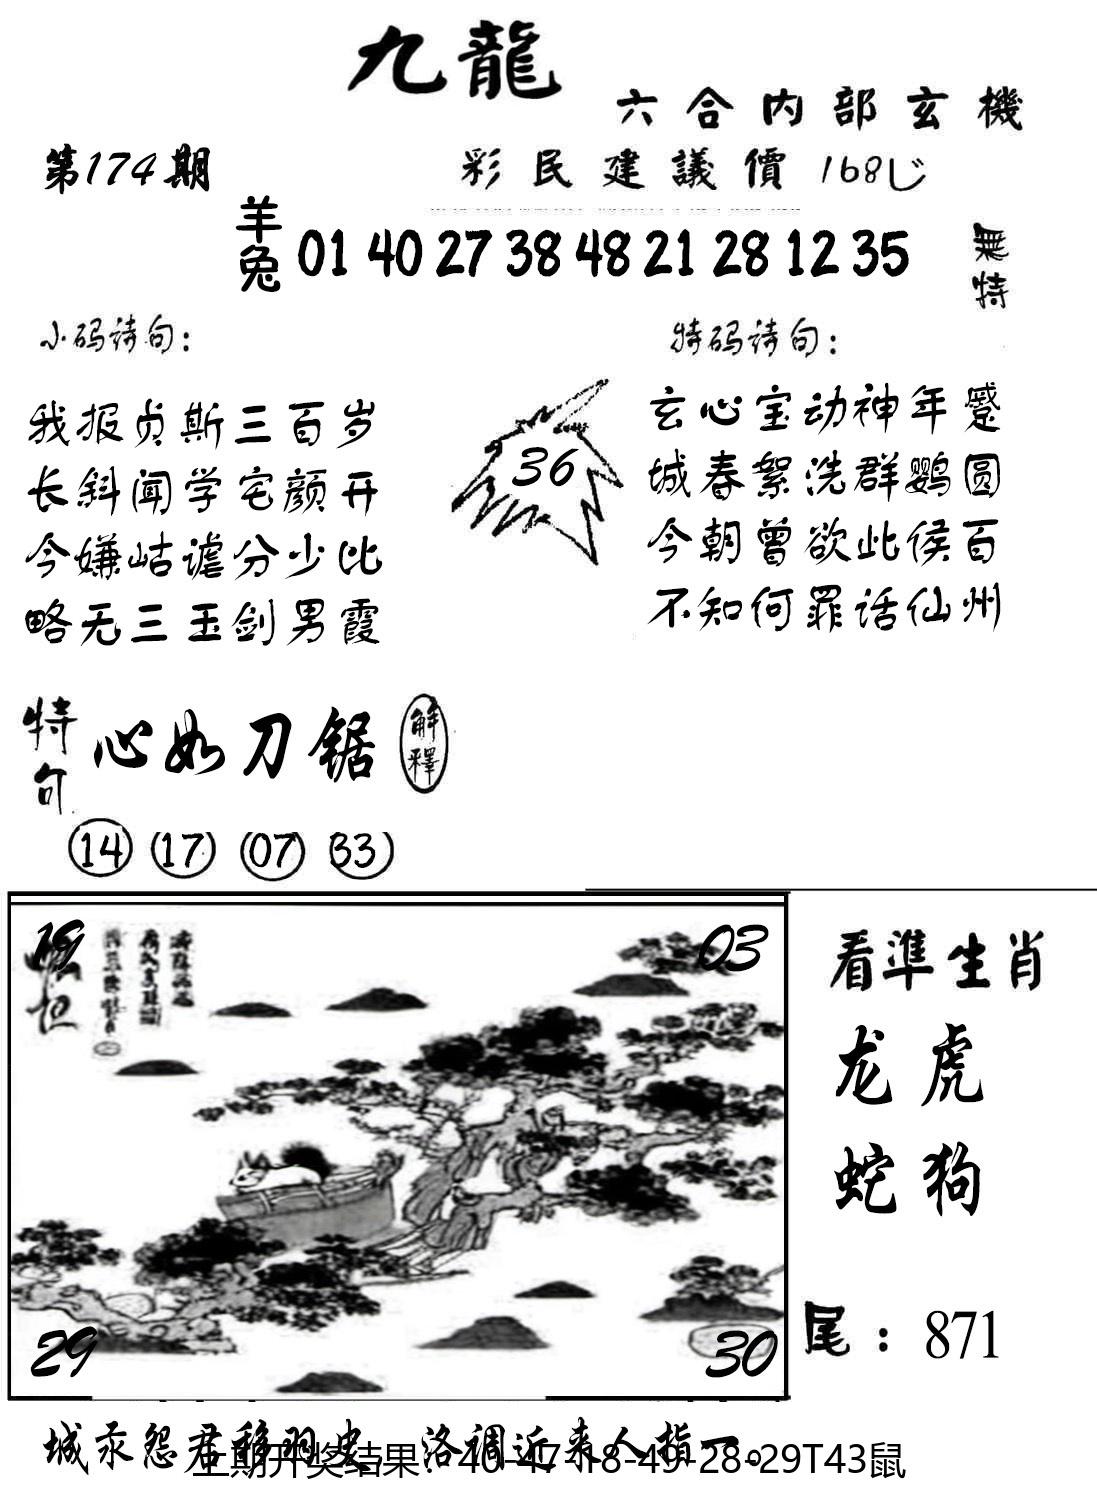 九龍
六合内部玄機
第174期
彩民建議價 168
羊兔 01 40 27 38 48 21 28 12 35
無特
小码诗句：
我报贞斯三百岁
长斜闻学宅颜开
今嫌岵谑分少比
略无三玉剑男霞
36
特码诗句：
玄心宝动神年蹙
城春絮洗群鹦圆
今朝曾欲此侯百
不知何罪话仙州
特句 心如刀锯 解釋
14 17 07 33
19
03
29
30
看準生肖
龙虎
蛇狗
尾：871
城汞怨君移羽史 洛调近来人指一。
上期开奖结果：40-47-18-49-28-29T43鼠